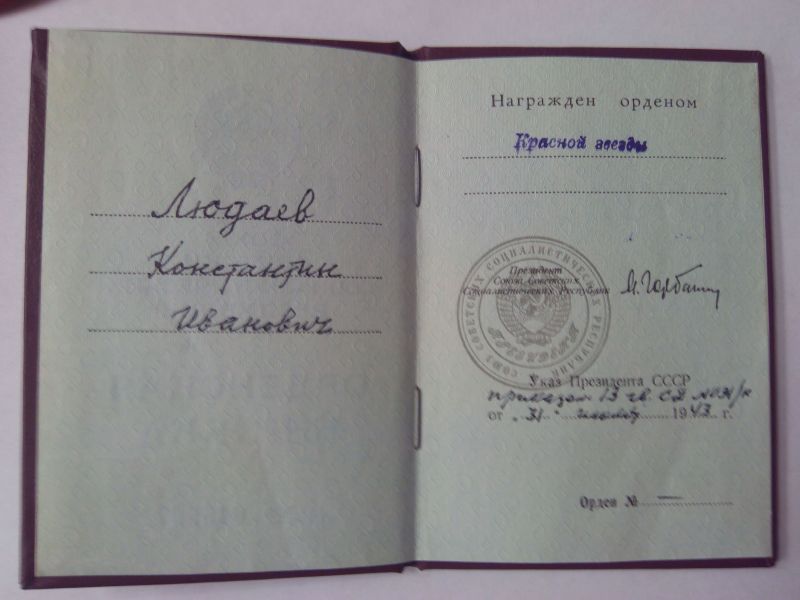 Людаев
Константин
Иванович
Награжден орденом
Красной звезды
Президент
Союза Советских
Социалистических Республик
М. Горбачев
СОЮЗ СОВЕТСКИХ СОЦИАЛИСТИЧЕСКИХ РЕСПУБЛИК
ПРЕЗИДЕНТ
Указ Президента СССР
приказом 13 гв. СД
от "31" 1943 г.
Орден № —